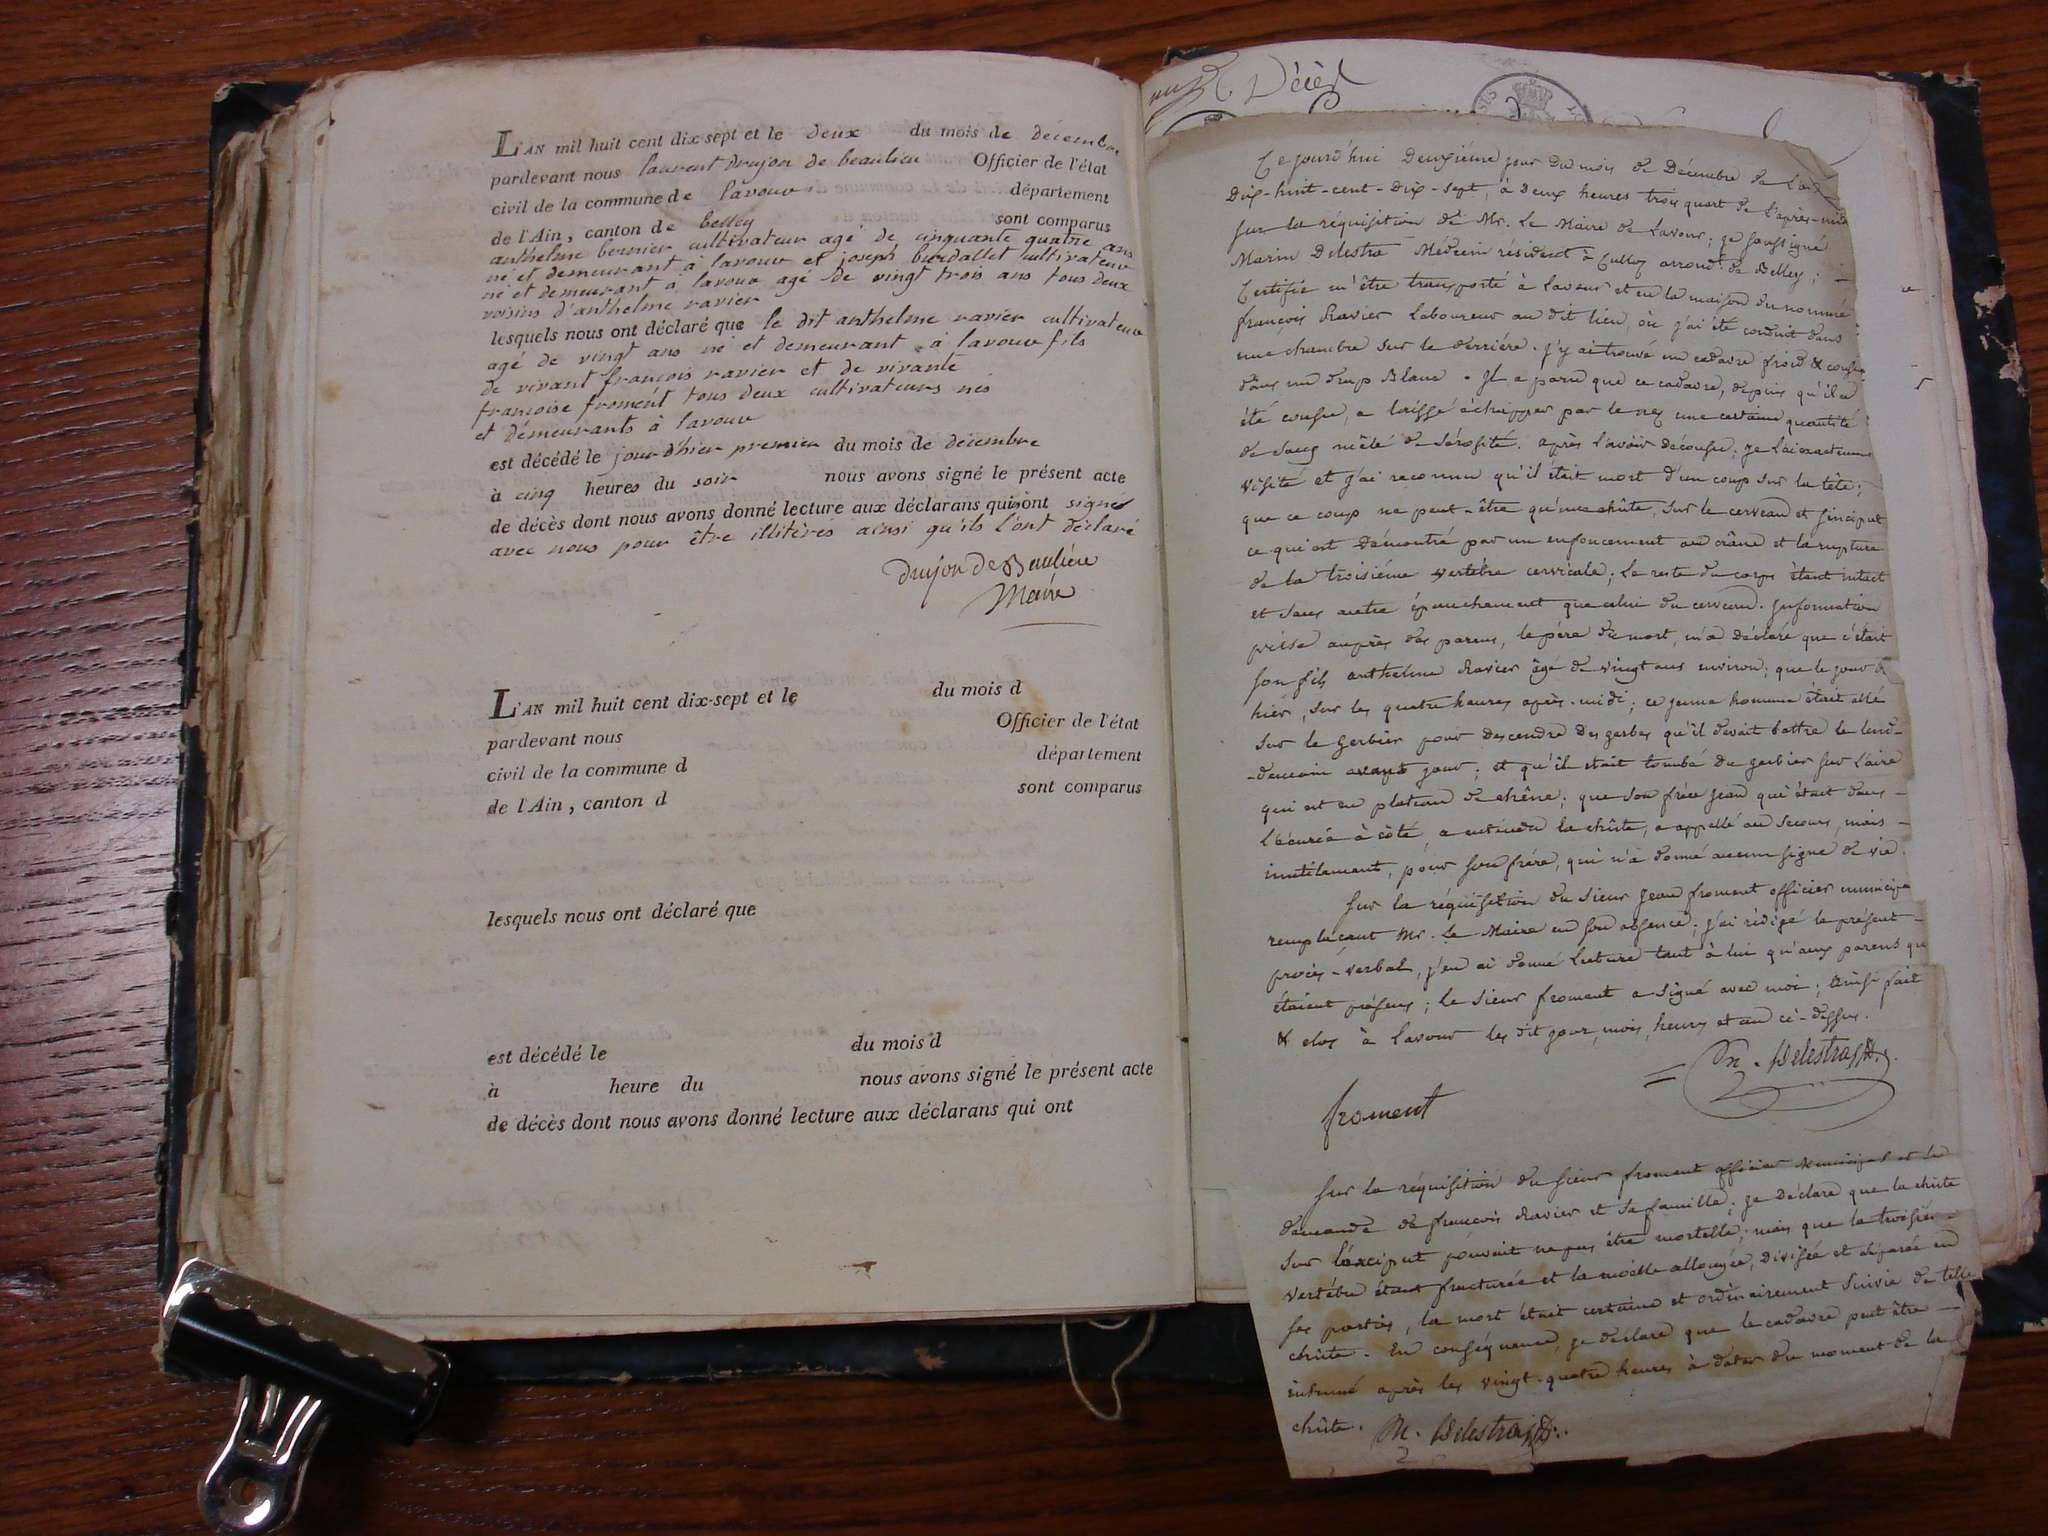 L'AN mil huit cent dix-sept et le deux du mois de decembre
pardevant nous laurent drujon de beaulieu Officier de l'état
civil de la commune de lavour département
de l'Ain, canton de belley sont comparus
anthelme bernier cultivateur agé de cinquante quatre ans
né et demeurant à lavour et joseph burdallet cultivateur
né et demeurant à lavour agé de vingt trois ans tous deux
voisins d'anthelme ravier
lesquels nous ont déclaré que le dit anthelme ravier cultivateur
agé de vingt ans né et demeurant à lavour fils
de vivant francois ravier et de vivante
francoise froment tous deux cultivateurs nés
et démeurants à lavour
est décédé le jour d'hier premier du mois de décembre
à cinq heures du soir nous avons signé le présent acte
de décès dont nous avons donné lecture aux déclarans qui ont signés
avec nous pour être illitérés ainsi qu'ils l'ont déclaré
Drujon De Beaulieu
Maire
L'AN mil huit cent dix-sept et le du mois d
pardevant nous Officier de l'état
civil de la commune d département
de l'Ain, canton d sont comparus
lesquels nous ont déclaré que
est décédé le du mois d
à heure du nous avons signé le présent acte
de décès dont nous avons donné lecture aux déclarans qui ont
Décès
Ce jourd'hui Deuxiéme jour du mois de Décembre de l'an
Dix-huit-cent-dix-sept, à deux heures trois quart de l'après-midi
sur la réquisition de Mr. Le Maire de Lavour; je soussigné
Marin Delestra Médecin résident à Culloz arrond.t de Belley;
Certifie m'être transporté à Lavour et en la maison du nommé
françois Ravier laboureur au dit lieu, où j'ai été conduit dans
une chambre sur le derrière. j'y ai trouvé un cadavre froid & cousu
dans un drap Blanc. Il a paru que ce cadavre, depuis qu'il a
été cousu, a laissé échapper par le nez une certaine quantité
de sang mêlé de sérosité. après l'avoir décousu, je l'ai exactement
visité et j'ai reconnu qu'il était mort d'un coup sur la tête;
que ce coup ne peut-être qu'une chûte, sur le cerveau et sinciput
ce qui est Démontré par un enfoncement au crâne et la rupture
de la troisiéme vertèbre cervicale; le reste du corps étant intact
et sans autre épanchement que celui du cerveau. Information
prise auprès des parens, le père du mort, m'a déclaré que c'était
son fils anthelme Ravier âgé de vingt ans environ; que le jour d'
hier, sur les quatre heures après-midi; ce jeune homme était allé
sur le gerbier pour descendre des gerbes qu'il devait battre le lend-
-demain avant jour; et qu'il était tombé du gerbier sur l'aire
qui est en plateau de chêne; que son frère jean qui était dans
l'écurie à côté a entendu la chûte, a appellé au secours, mais
inutilement, pour son frère, qui n'a donné aucun signe de vie.
Sur la réquisition du sieur jean froment officier municipal
remplaçant Mr. Le Maire en son absence; j'ai rédigé le présent
procès-verbal, j'en ai donné lecture tant à lui qu'aux parens qui
étaient présens; le sieur froment a signé avec moi; ainsi fait
& clos à Lavour les dit jour, mois, heures et an ci-dessus.
M. Delestra
froment
Sur la réquisition du sieur froment officier municipal et la
demande de françois Ravier et sa famille; je déclare que la chûte
sur l'occiput pouvait ne pas être mortelle; mais que la troisiem-
vertèbre étant fracturée et la moëlle allongée, divisée et séparée en
ses parties, la mort était certaine et ordinairement suivie de telle
chûte. En conséquence, je déclare que le cadavre peut être
inhumé après les vingt-quatre heures à dater du moment de la
chûte. M. Delestra